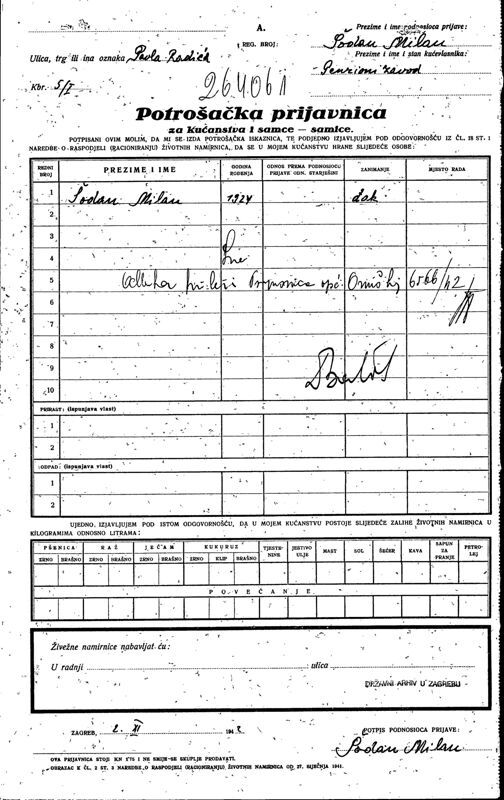 A.
Prezime i ime podnosioca prijave:
Šodan Milan
Ulica, trg ili ina oznaka Pavla Radića
REG. BROJ:
Prezime i ime i stan kućevlasnika:
Penzioni zavod
Kbr. 5/I
264061
Potrošačka prijavnica
za kućanstva i samce — samice.
POTPISANI OVIM MOLIM, DA MI SE IZDA POTROŠAČKA ISKAZNICA, TE PODJEDNO IZJAVLJUJEM POD ODGOVORNOŠĆU IZ ČL. 18 ST. 1
NAREDBE O RASPODJELI (RACIONIRANJU) ŽIVOTNIH NAMIRNICA, DA SE U MOJEM KUĆANSTVU HRANE SLIJEDEĆE OSOBE:
REDNI BROJ PREZIME I IME GODINA ROĐENJA ODNOS PREMA PODNOSIOCU PRIJAVE ODN. STARJEŠINI ZANIMANJE MJESTO RADA
1 Šodan Milan 1924 đak
2
3
4
5 Odluka 6566/42
6
7
8
9
10
PRIRAST: (ispunjava vlast)
1
2
ODPAD: (ispunjava vlast)
1
2
UJEDNO IZJAVLJUJEM POD ISTOM ODGOVORNOŠĆU, DA U MOJEM KUĆANSTVU POSTOJE SLIJEDEĆE ZALIHE ŽIVOTNIH NAMIRNICA U
KILOGRAMIMA ODNOSNO LITRAMA:
PŠENICA RAŽ JEČAM KUKURUZ TJESTENINE JESTIVO ULJE MAST SOL ŠEĆER KAVA SAPUN ZA PRANJE PETROLEJ
ZRNO BRAŠNO ZRNO BRAŠNO ZRNO BRAŠNO ZRNO KLIP BRAŠNO
POVEĆANJE
Živežne namirnice nabavljat ću:
U radnji ulica
DRŽAVNI ARHIV U ZAGREBU
ZAGREB, 2. XI 1942
POTPIS PODNOSIOCA PRIJAVE:
Šodan Milan
OVA PRIJAVNICA STOJI KN 1.75 I NE SMIJE SE SKUPLJE PRODAVATI.
OBRAZAC K ČL. 2 ST. 3 NAREDBE O RASPODJELI (RACIONIRANJU) ŽIVOTNIH NAMIRNICA OD 27. SIJEČNJA 1941.